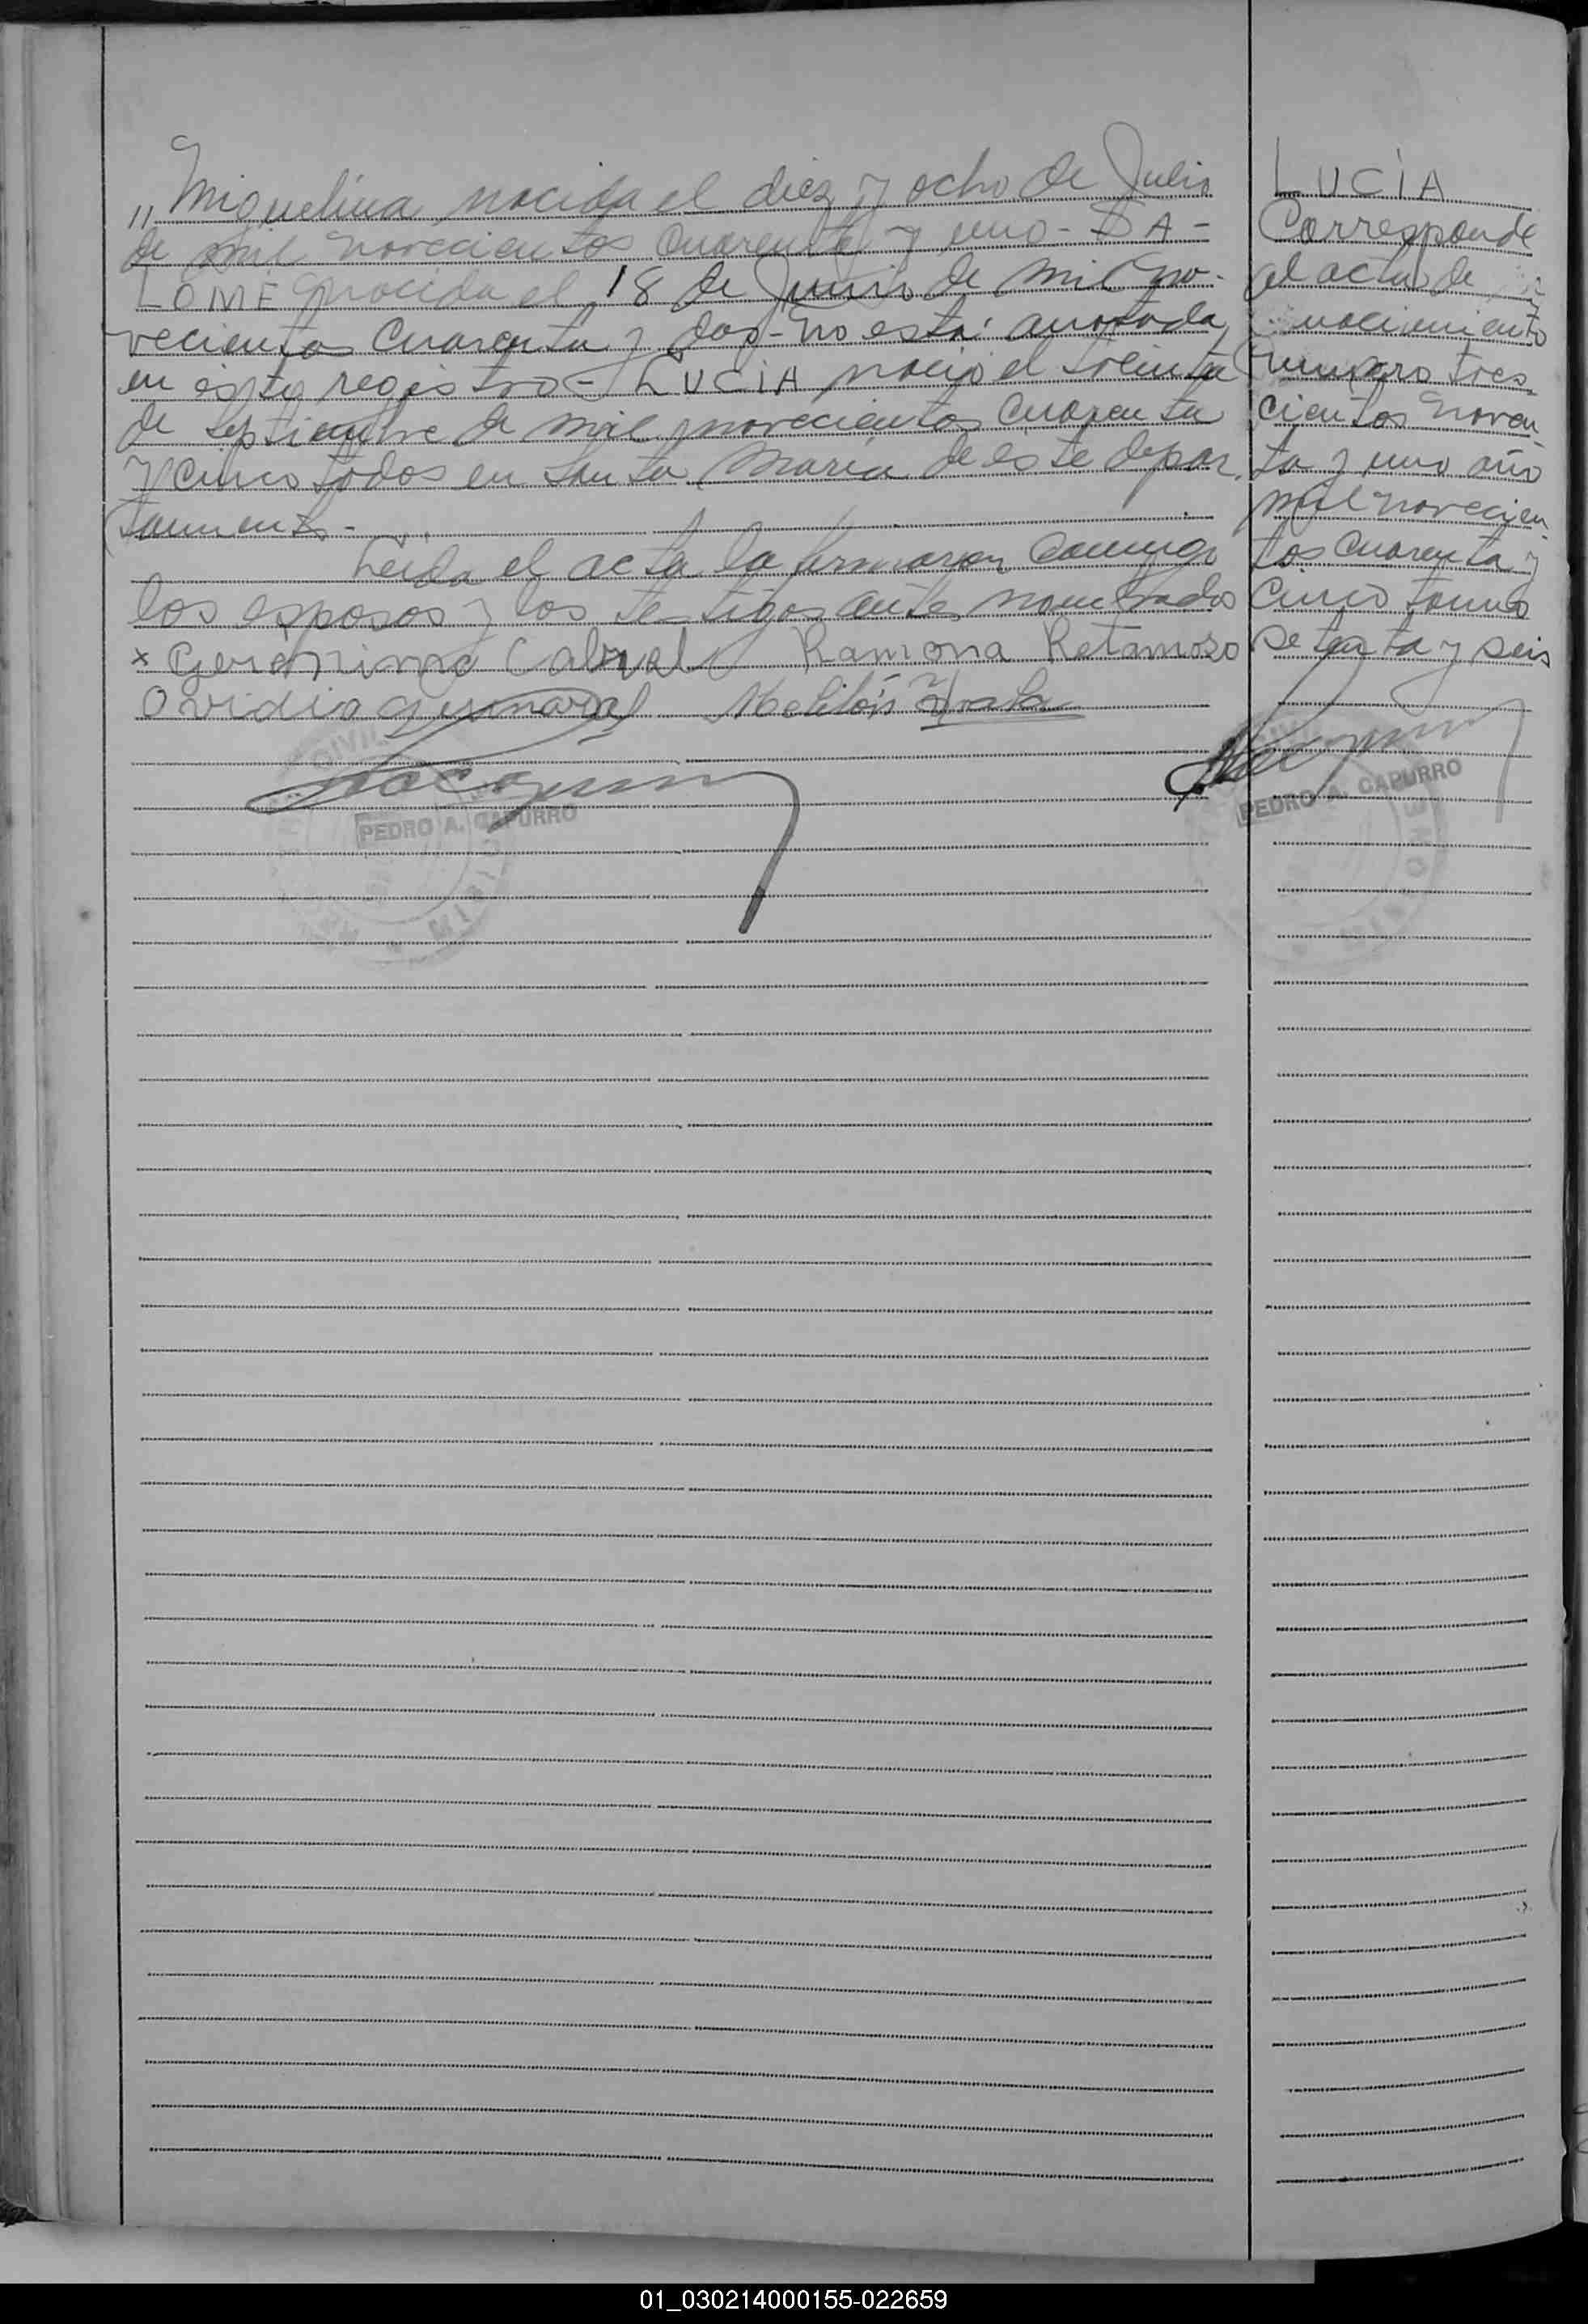 ,, Miguelina nacida el diez y ocho de Julio
de mil novecientos cuarenta y uno - SA-
LOME nacida el 18 de Junio de mil no-
vecientos cuarenta y dos - no está anotada
en este registro - LUCIA nació el treinta
de septiembre de mil novecientos cuarenta
y cinco todos en Santa María de este depar
tamento -
Leida el acta la firmaron conmigo
los esposos y los testigos antes nombrados
x Geronimo Cabral Ramona Retamozo
Ovidio Melitón
PEDRO A. CAPURRO
LUCIA
Corresponde
al acta de
nacimiento
numero tres
cientos noven
ta y uno año
mil novecien
tos cuarenta y
cinco tomo
setenta y seis
PEDRO A. CAPURRO
01_030214000155-022659